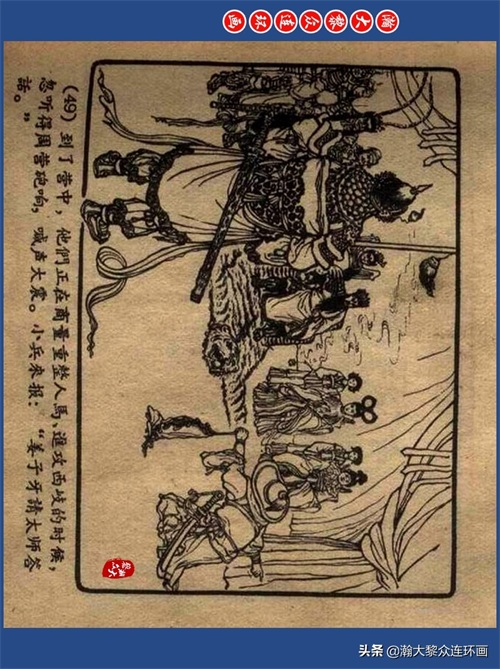 瀚大黎众连环画
(49) 到了营中，他們正在商量重整人馬，進攻西岐的时候，
忽听得周营砲响，喊声大震。小兵来报：“姜子牙請太师答
話。”
瀚大
黎众
头条 @瀚大黎众连环画